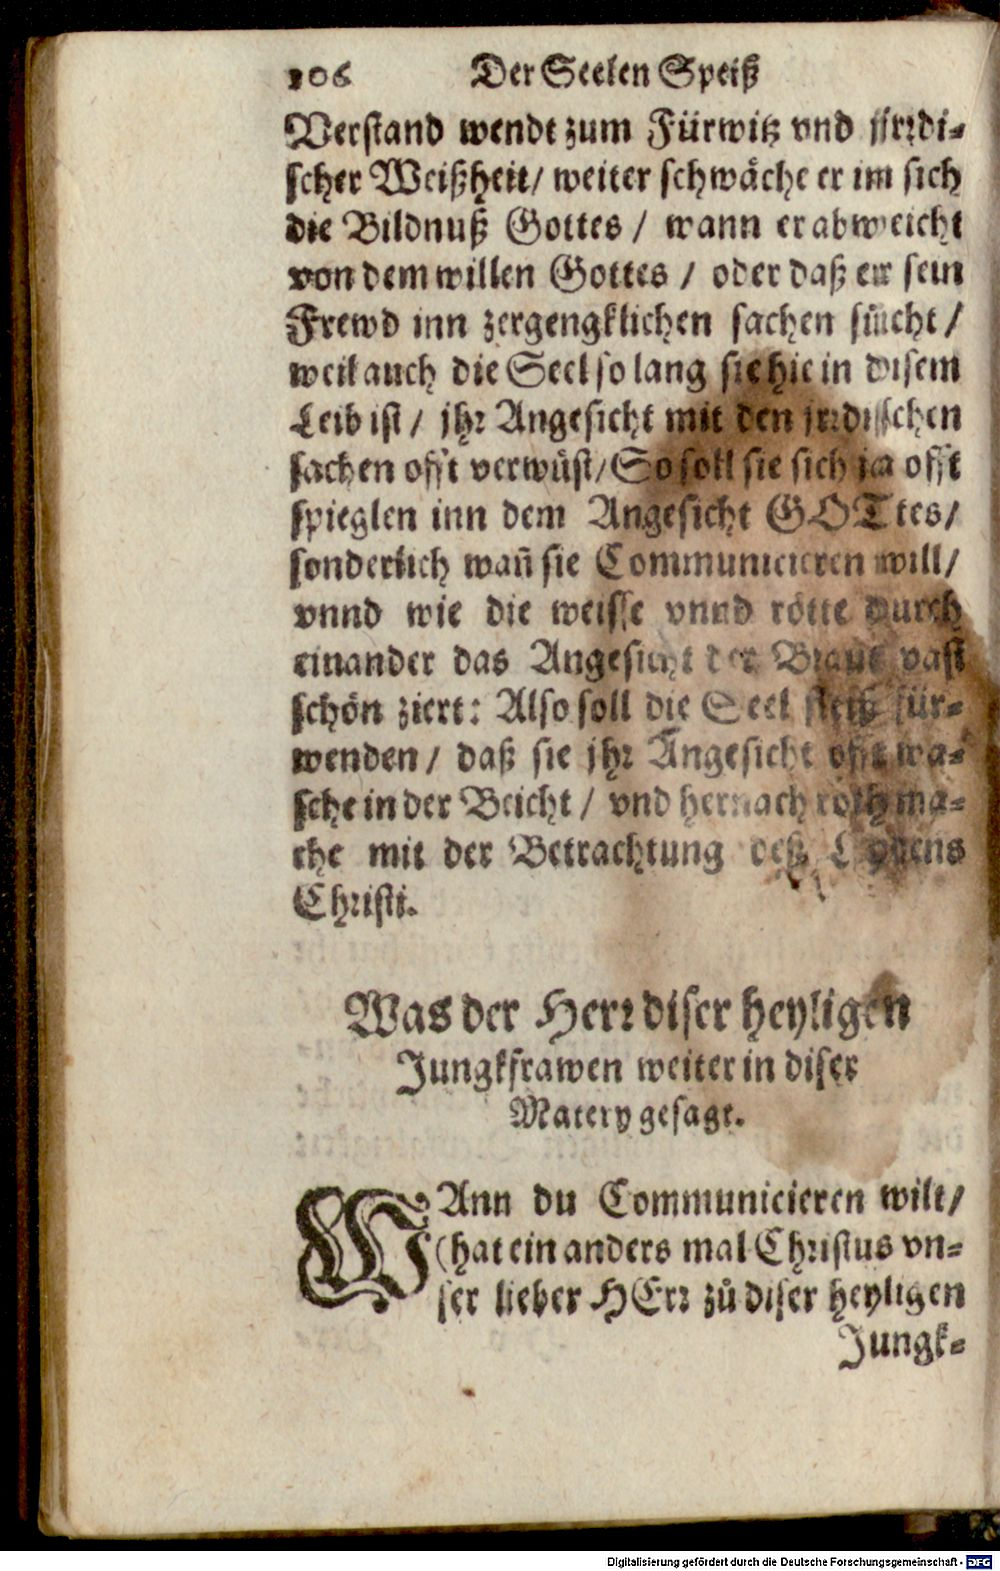 106 Der Seelen Speiß
Verstand wendt zum Fürwitz vnd jrrdi-
scher Weißheit/ weiter schwäche er im sich
die Bildnuß Gottes / wann er abweicht
von dem willen Gottes / oder daß er sein
Frewd inn zergengklichen sachen sůcht/
weil auch die Seel so lang sie hie in disem
Leib ist / jhr Angesicht mit den jrrdischen
sachen offt verwüst/ So soll sie sich ja offt
spieglen inn dem Angesicht GOTtes/
sonderlich wañ sie Communicieren will/
vnnd wie die weisse vnnd rötte durch
einander das Angesicht der Braut vast
schön ziert: Also soll die Seel fleiß für-
wenden / daß sie jhr Angesicht offt wa-
sche in der Beicht / vnd hernach roth ma-
che mit der Betrachtung deß Lydens
Christi.
Was der Herr diser heyligen
Jungkfrawen weiter in diser
Matery gesagt.
WAnn du Communicieren wilt/
(hat ein anders mal Christus vn-
ser lieber HErr zů diser heyligen
Jungk-
Digitalisierung gefördert durch die Deutsche Forschungsgemeinschaft - DFG